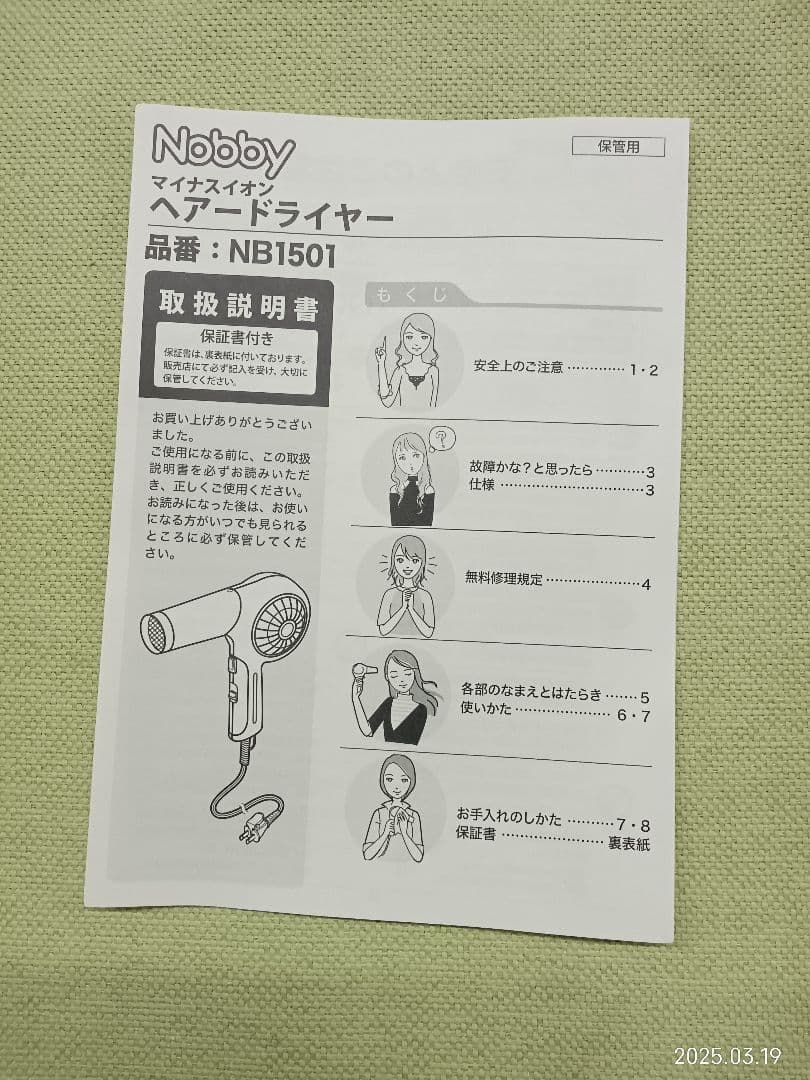 Nobby
保管用
マイナスイオン
ヘアードライヤー
品番：NB1501
取扱説明書
保証書付き
保証書は、裏表紙に付いております。
販売店にて必ず記入を受け、大切に
保管してください。
お買い上げありがとうござい
ました。
ご使用になる前に、この取扱
説明書を必ずお読みいただ
き、正しくご使用ください。
お読みになった後は、お使い
になる方がいつでも見られる
ところに必ず保管してくだ
さい。
もくじ
安全上のご注意 ………… 1・2
?
故障かな？と思ったら ………3
仕様 ……………………3
無料修理規定 …………………4
各部のなまえとはたらき ……5
使いかた ………………… 6・7
お手入れのしかた ………7・8
保証書 ………………… 裏表紙
2025.03.19